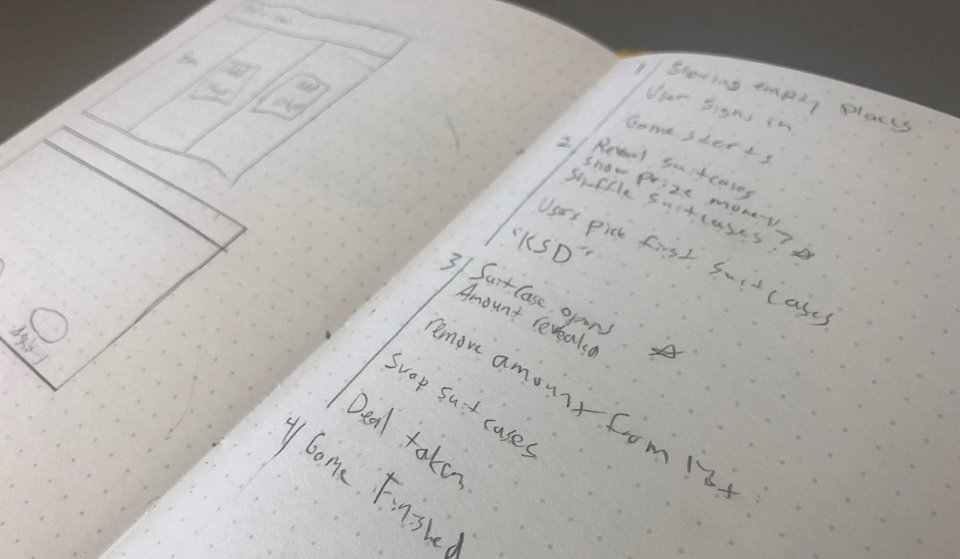 1/ Showing empty places
User signs in
Game starts
2/ Reveal suitcases
Show prize money
Shuffle suitcases ?
Users pick first suitcases
"KSD"
3/ Suitcase opens
Amount revealed
remove amount from list
Swap suitcases
Deal taken
4/ Game Finished